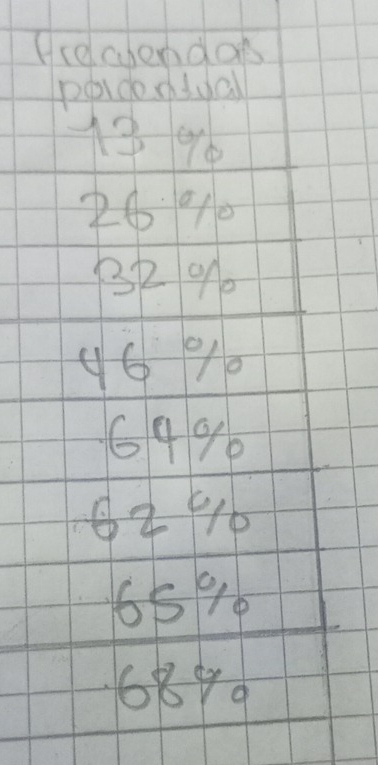 Frecuendas
porcentual
13 %
26 %
32 %
46 %
64 %
62 %
65 %
68 %